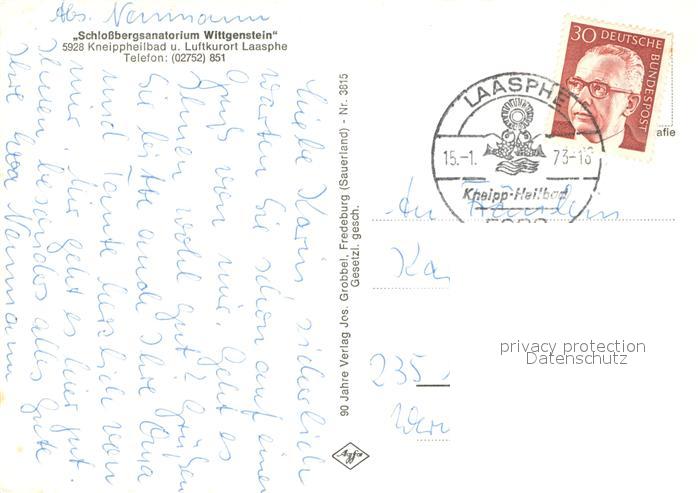 Abs. Neumann
„Schloßbergsanatorium Wittgenstein“
5928 Kneippheilbad u. Luftkurort Laasphe
Telefon: (02752) 851
Liebe Karin, sicherlich
warten Sie schon auf einen
Gruß von mir. Geht es
Ihnen wohl gut? Grüßen
Sie bitte auch Ihre Oma
und Tante herzlich von
mir. Mir geht es hier gut.
Ihnen besonders alles Gute
Ihre Neumann
90 Jahre Verlag Jos. Grobbel, Fredeburg (Sauerland) - Nr. 3815
Gesetzl. gesch.
Agfa
30 DEUTSCHE BUNDESPOST
afie
LAASPHE
15.-1. 73-18
Kneipp-Heilbad
An Fräulein
Ka
235
privacy protection
Datenschutz